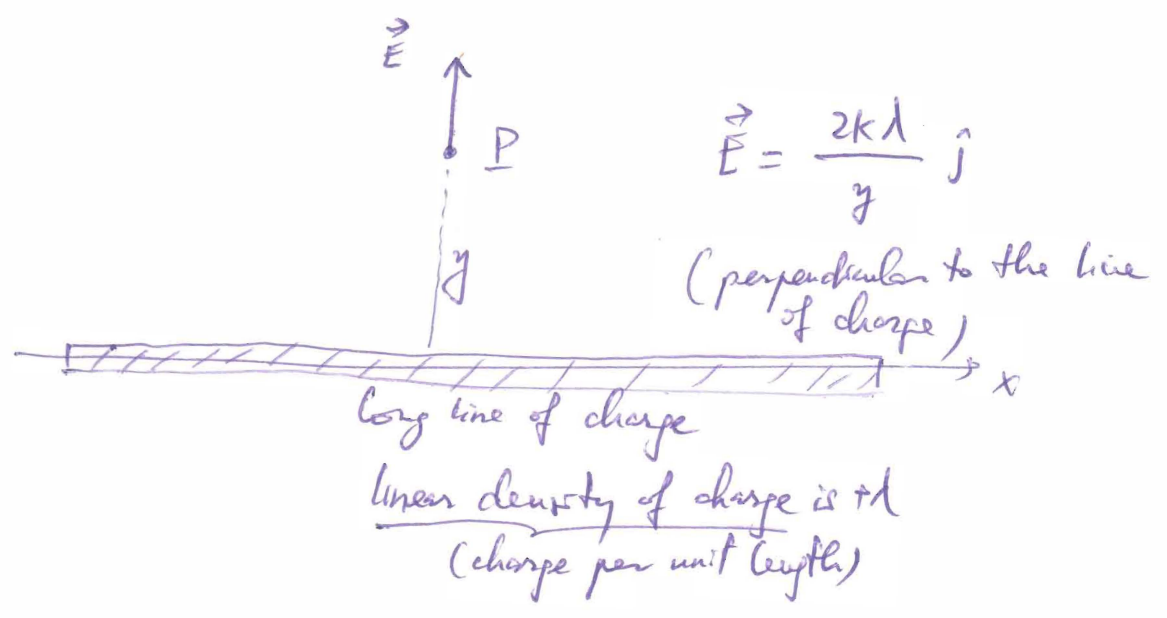 E⃗
P
E⃗ = 2kλ/y ĵ
y
(perpendicular to the line
of charge)
x
Long line of charge
linear density of charge is +λ
(charge per unit length)